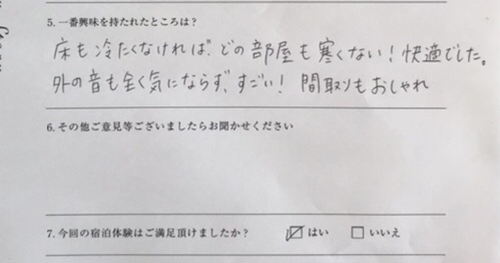 5. 一番興味を持たれたところは？
床も冷たくなければ、どの部屋も寒くない！快適でした。
外の音も全く気にならず、すごい！間取りもおしゃれ
6. その他ご意見等ございましたらお聞かせください
7. 今回の宿泊体験はご満足頂けましたか？ ☑ はい ☐ いいえ